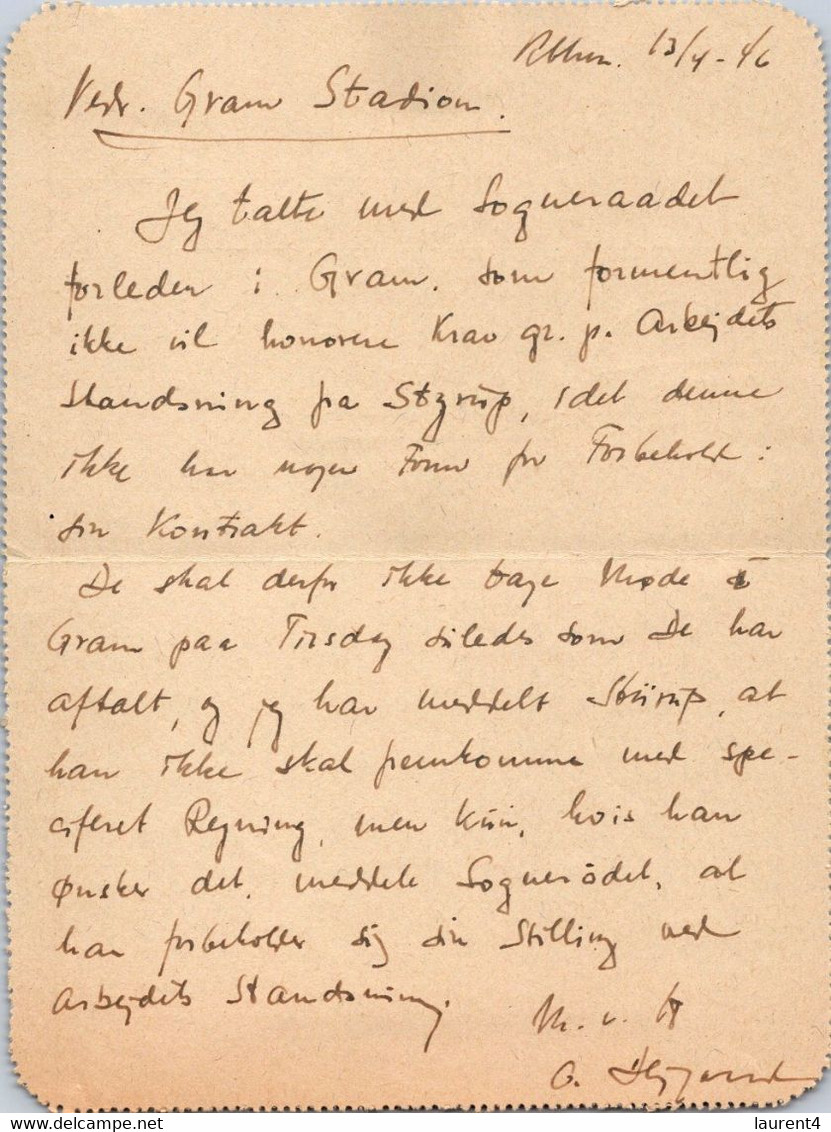 13/4-46
Vedr. Gram Stadion.
Jeg talte med Sogneraadet
forleden i Gram, som formentlig
ikke vil honorere Krav gr. p. Arbejdets
Standsning pa Styrup, idet denne
ikke har nogen Form for Forbehold i
sin Kontrakt.
De skal derfor ikke tage Møde i
Gram paa Tirsdag således som De har
aftalt, og jeg har meddelt Stürup, at
han ikke skal fremkomme med spe-
ciferet Regning, men kün, hvis han
Ønsker det, meddele Sognerådet, at
han forbeholder sig sin Stilling ved
Arbejdets Standsning.
M. v. H
laurent4